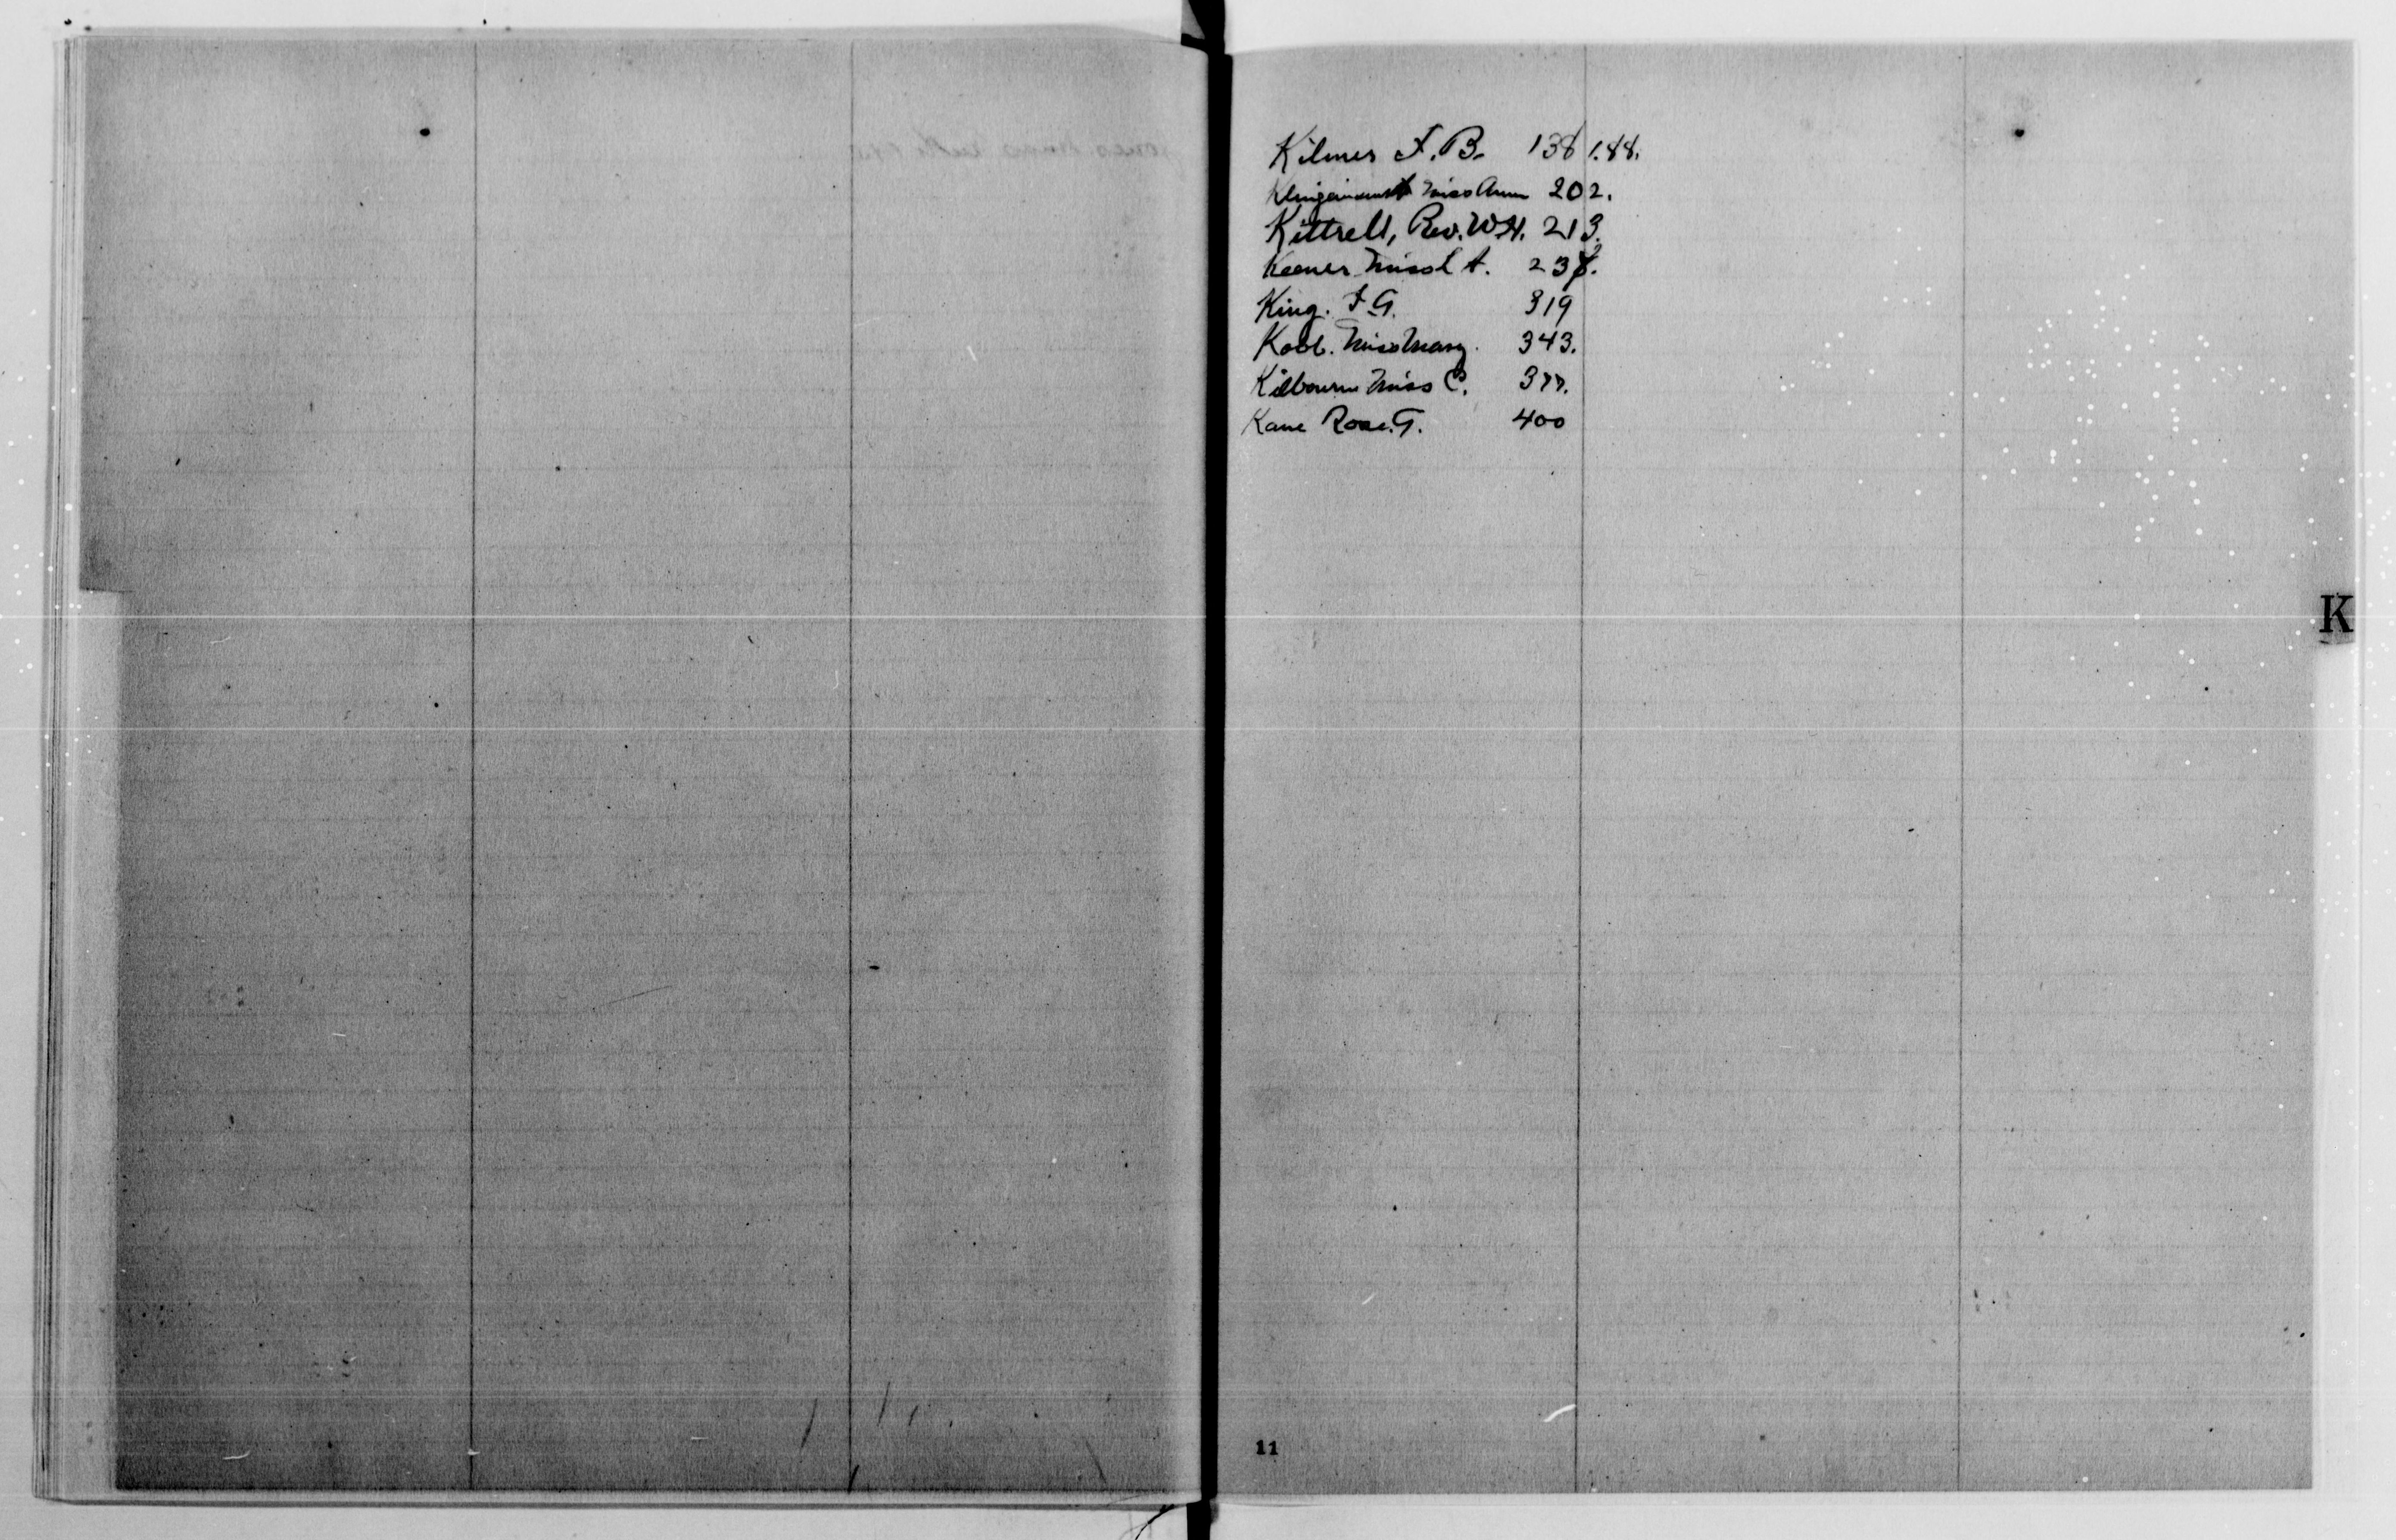 Kilmer F. B. 138 1.88.
Miss Anna 202.
Kittrell, Rev. W.H. 213.
Keener Miss L A. 23
King. F G. 319
Koob. Miss Mary. 343.
Kilbourne Miss C. 377.
Kane Rose. G. 400
K
11